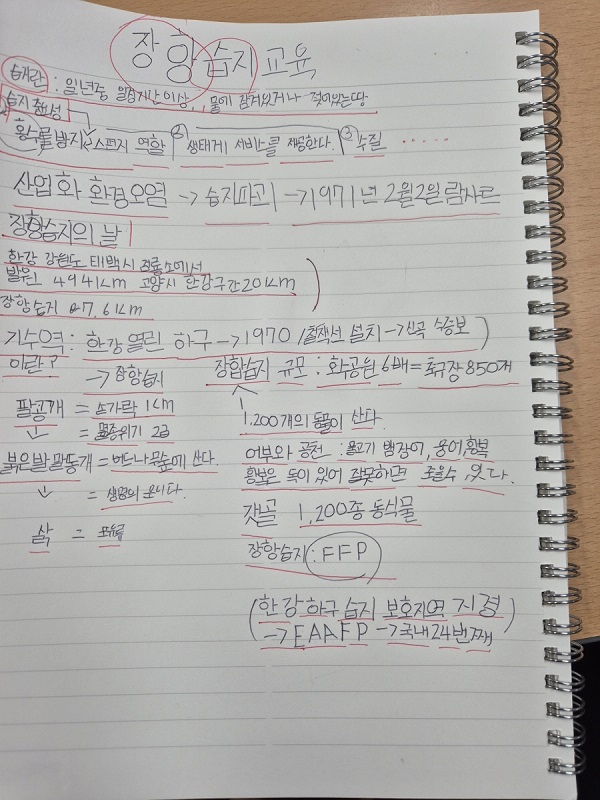 장항습지 교육
습지란 : 일년중 일정기간 이상, 물에 잠겨있거나 젖어있는땅
습지 중요성
홍수를 방지 스펀지 역할 ② 생태계 서비스를 제공한다. ③ 수질 .....
산업화 환경오염 → 습지파괴 → 1971년 2월2일 람사르
장항습지의 날
한강 강원도 태백시 검룡소에서
발원 494KM 고양시 한강구간20KM
장항습지 7.6KM
기수역 : 한강 열린 하구 → 1970 철책선 설치 → 신곡 수중보
이란?
→ 장항습지
장합습지 규모 : 호수공원 6배 = 축구장 850개
팔공개 = 손가락 1CM
1,200개의 동물이 산다.
= 멸종위기 2급
어부와 공천 : 물고기 뱀장어, 웅어, 황복
붉은발 말똥개 = 버드나무숲에 산다.
황보은 독이 있어 잘못하면 죽을수 있다.
= 생명의 보니다.
갯골 1,200종 동식물
삵 =
장항습지 : FFP
(한강하구 습지 보호지역 지정)
→ EAAFP → 국내 24번째